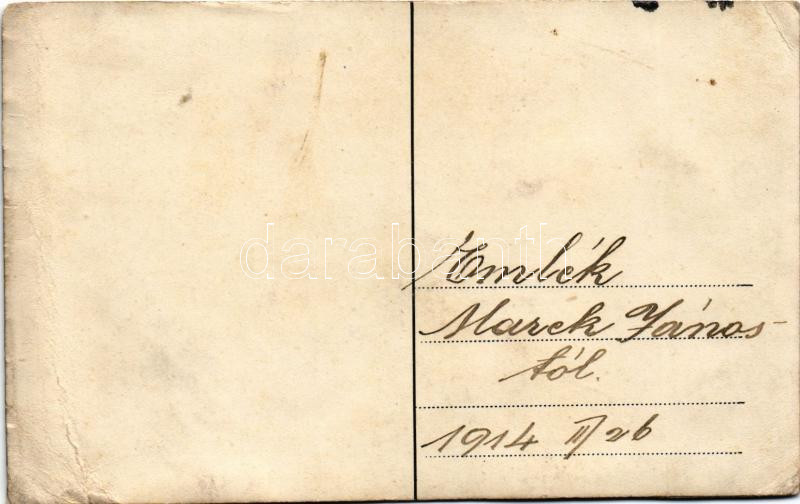 darabanth
Emlék
Marek János-
tól.
1914 II/26